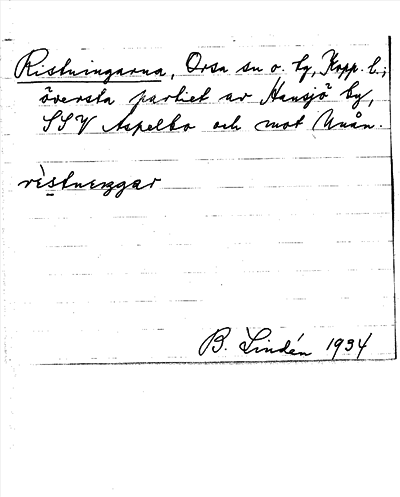 Ristningarna, Orsa sn o. tg, Kopp. l.;
översta partiet av Hansjö by,
SSV Aspelbo och mot Unån.
ristneggar
B. Lindén 1934